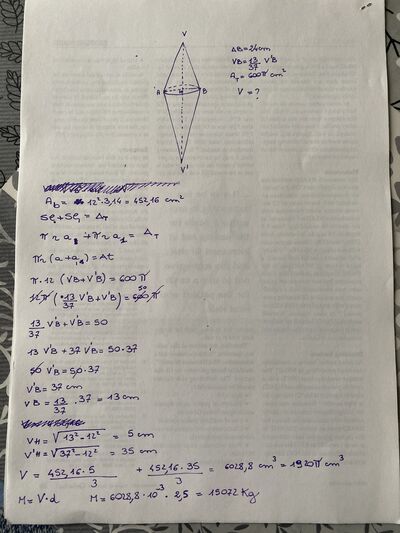 V
AB = 24 cm
VB = 13/37 V'B
A_T = 600π cm²
V = ?
A
H
B
V'
A_b = 12² · 3,14 = 452,16 cm²
Sℓ₁ + Sℓ₁ = A_T
π r a + π r a₁ = A_T
πr (a + a₁) = At
π · 12 (VB + V'B) = 600 π
12 π (13/37 V'B + V'B) = 600 π 50
13/37 V'B + V'B = 50
13 V'B + 37 V'B = 50 · 37
50 V'B = 50 · 37
V'B = 37 cm
VB = 13/37 · 37 = 13 cm
VH = √13² - 12² = 5 cm
V'H = √37² - 12² = 35 cm
V = 452,16 · 5 / 3 + 452,16 · 35 / 3 = 6028,8 cm³ = 1920π cm³
M = V · d M = 6028,8 · 10⁻³ · 2,5 = 15072 Kg